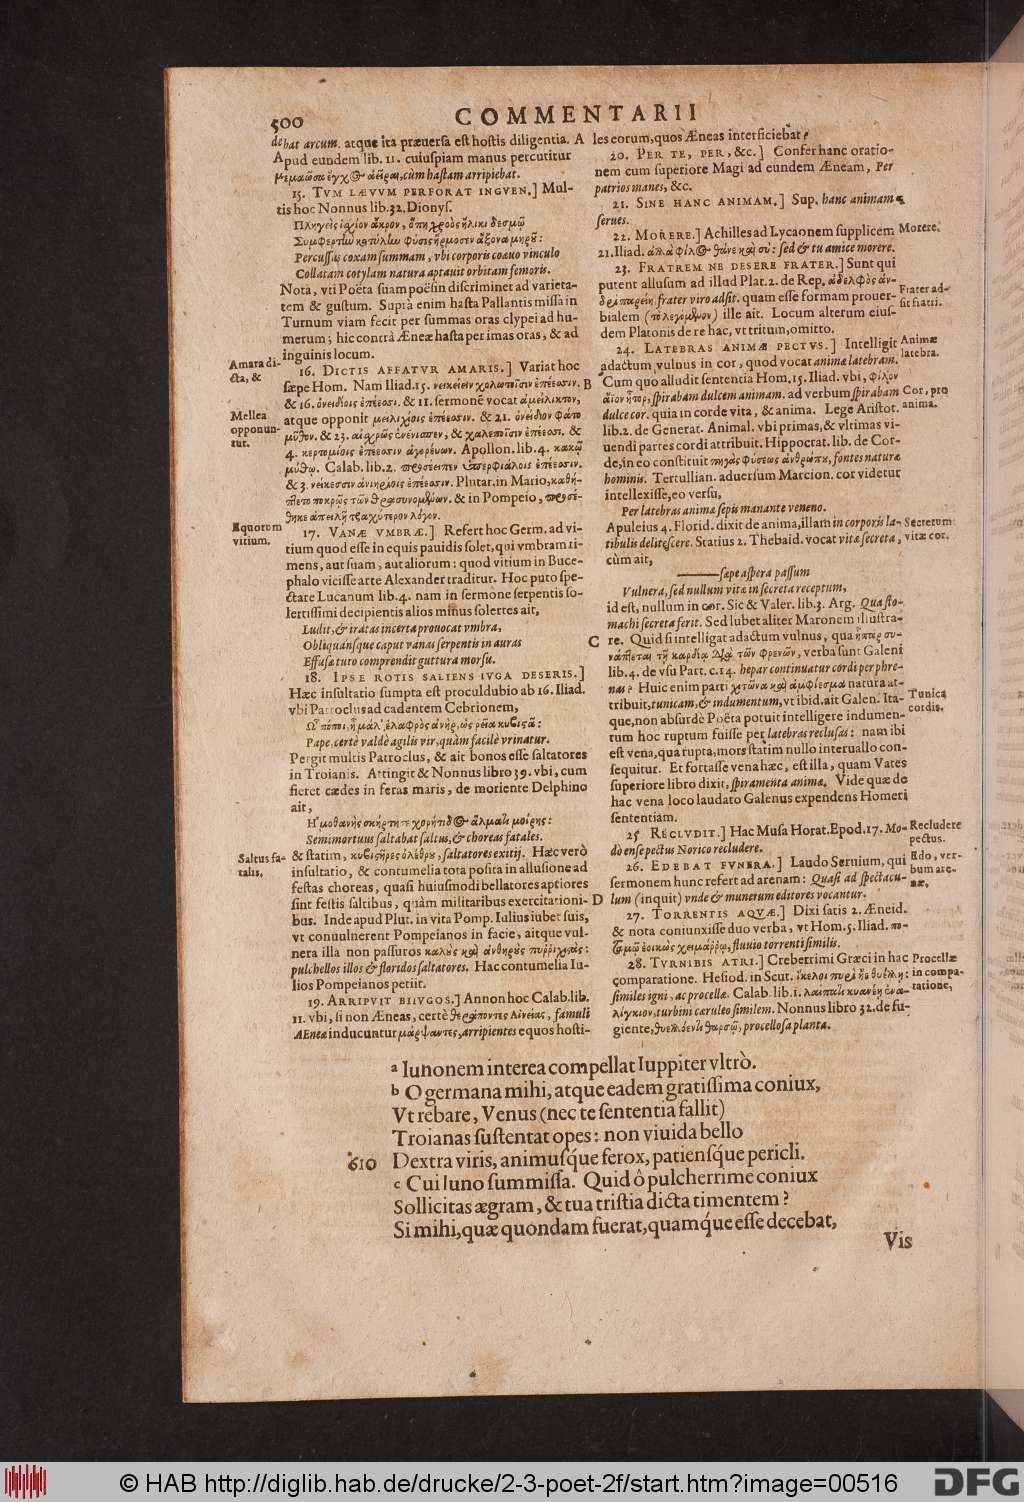 500
COMMENTARII
debat arcum. atque ita præuersa est hostis diligentia.
Apud eundem lib. 11. cuiuspiam manus percutitur
μεμαῶσα ἔγχ@ ἀεῖραι, cùm hastam arripiebat.
15. TVM LÆVVM PERFORAT INGVEN.] Mul-
tis hoc Nonnus lib. 32. Dionys.
Πληγεὶς ἰσχίον ἄκρον, ὅπη χροὸς ἥλικι δεσμῷ
Συμφερτὴν κοτύλην φύσις ἥρμοσεν ἄξονα μηροῦ:
Percussus coxam summam, vbi corporis coæuo vinculo
Collatam cotylam natura aptauit orbitam femoris.
Nota, vti Poëta suam poësin discriminet ad varieta-
tem & gustum. Suprà enim hasta Pallantis missa in
Turnum viam fecit per summas oras clypei ad hu-
merum; hic contrà Æneæ hasta per imas oras, & ad
inguinis locum.
Amara di-
cta, &
16. DICTIS AFFATVR AMARIS.] Variat hoc
sæpe Hom. Nam Iliad. 15. νεικείειν χολωτοῖσιν ἐπέεσσιν.
& 16. ὀνειδίοις ἐπέεσσι. & 11. sermonē vocat ἀμείλικτον,
Mellea
opponun-
tur.
atque opponit μειλιχίοις ἐπέεσσιν. & 21. ὀνείδιον φάτο
μῦθον. & 23. αἰσχρῶς ἐνένισπεν, & χαλεποῖσιν ἐπέεσσι. &
4. κερτομίοις ἐπέεσσιν ἀγορέυων. Apollon. lib. 4. κακῷ
μύθῳ. Calab. lib. 2. προσέειπεν ὑπερφιάλοις ἐπέεσσιν.
& 3. νείκεσσεν ἀνιηροῖς ἐπέεσσιν. Plutar. in Mario, καθή-
πτετο πικρῶς τῶν θρασυνομένων. & in Pompeio, προσέ-
θηκε ἀπειλῇ τραχύτερον λόγον.
Equorum
vitium.
17. VANÆ VMBRÆ.] Refert hoc Germ. ad vi-
tium quod esse in equis pauidis solet, qui vmbram ti-
mens, aut suam, aut aliorum: quod vitium in Buce-
phalo vicisse arte Alexander traditur. Hoc puto spe-
ctare Lucanum lib. 4. nam in sermone serpentis so-
lertissimi decipientis alios minus solertes ait,
Ludit, & iratas incerta prouocat vmbra,
Obliquánsque caput vanas serpentis in auras
Effusæ tuto comprendit guttura morsu.
18. IPSE ROTIS SALIENS IVGA DESERIS.]
Hæc insultatio sumpta est proculdubio ab 16. Iliad.
vbi Patroclus ad cadentem Cebrionem,
Ὢ πόποι, ἦ μάλ' ἐλαφρὸς ἀνὴρ, ὡς ῥεῖα κυβιστᾷ:
Papæ, certè valdè agilis vir, quàm facilè vrinatur.
Pergit multis Patroclus, & ait bonos esse saltatores
in Troianis. Attingit & Nonnus libro 39. vbi, cum
fieret cædes in feras maris, de moriente Delphino
ait,
Ἡμιθανὴς σκήρτησε χορήτιδ@ ἅλμασι μοίρης:
Semimortuus saltabat saltus, & choreas fatales.
Saltus fa-
talis.
& statim, κυβιστῆρες ὀλέθρου, saltatores exitij. Hæc verò
insultatio, & contumelia tota posita in allusione ad
festas choreas, quasi huiusmodi bellatores aptiores
sint festis saltibus, quàm militaribus exercitationi-
bus. Inde apud Plut. in vita Pomp. Iulius iubet suis,
vt conuulnerent Pompeianos in facie, aitque vul-
nera illa non passuros καλοὺς καὶ ἀνθηροὺς πυῤῥιχιστάς:
pulchellos illos & floridos saltatores. Hac contumelia Iu-
lios Pompeianos petiit.
19. ARRIPVIT BIIVGOS.] Annon hoc Calab. lib.
11. vbi, si non Æneas, certè θεράποντες Αἰνείας, famuli
AEneæ inducuntur μάρψαντες, arripientes equos hosti-
A
B
C
D
les eorum, quos Æneas interficiebat?
20. PER TE, PER, &c.] Confer hanc oratio-
nem cum superiore Magi ad eundem Æneam, Per
patrios manes, &c.
21. SINE HANC ANIMAM.] Sup. hanc animam
serues.
22. MORERE.] Achilles ad Lycaonem supplicem
Morere.
21. Iliad. ἀλλὰ φίλ@ θάνε καὶ σύ: sed & tu amice morere.
23. FRATREM NE DESERE FRATER.] Sunt qui
putent allusum ad illud Plat. 2. de Rep. ἀδελφὸς ἀν-
Frater ad-
sit fratri.
δρὶ παρείη, frater viro adsit. quam esse formam prouer-
bialem (τὸ λεγόμενον) ille ait. Locum alterum eius-
dem Platonis de re hac, vt tritum, omitto.
24. LATEBRAS ANIMÆ PECTVS.] Intelligit
Animæ
latebra.
adactum vulnus in cor, quod vocat animæ latebram.
Cum quo alludit sententia Hom. 15. Iliad. vbi, φίλον
ἄϊον ἦτορ, spirabam dulcem animam. ad verbum spirabam
Cor, pro
anima.
dulce cor. quia in corde vita, & anima. Lege Aristot.
lib. 2. de Generat. Animal. vbi primas, & vltimas vi-
uendi partes cordi attribuit. Hippocrat. lib. de Cor-
de, in eo constituit πηγὰς φύσεως ἀνθρώπου, fontes naturæ
hominis. Tertullian. aduersum Marcion. cor videtur
intellexisse, eo versu,
Per latebras animæ sepis manante veneno.
Apuleius 4. Florid. dixit de anima, illam in corporis la-
Secretum
vitæ cor.
tibulis delitescere. Statius 2. Thebaid. vocat vitæ secreta,
cùm ait,
——sæpe aspera passum
Vulnera, sed nullum vitæ in secreta receptum,
id est, nullum in cor. Sic & Valer. lib. 3. Arg. Qua sto-
machi secreta ferit. Sed lubet aliter Maronem illustra-
re. Quid si intelligat adactum vulnus, qua ἧπαρ συ-
νάπτεται τῇ καρδίᾳ διὰ τῶν φρενῶν, verba sunt Galeni
lib. 4. de vsu Part. c. 14. hepar continuatur cordi per phre-
nas? Huic enim parti χιτῶνα καὶ ἀμφίεσμα natura at-
Tunica
cordis.
tribuit, tunicam, & indumentum, vt ibid. ait Galen. Ita-
que, non absurdè Poëta potuit intelligere indumen-
tum hoc ruptum fuisse per latebras reclusas: nam ibi
est vena, qua rupta, mors statim nullo interuallo con-
sequitur. Et fortasse vena hæc, est illa, quam Vates
superiore libro dixit, spiramenta animæ. Vide quæ de
hac vena loco laudato Galenus expendens Homeri
sententiam.
25. RECLVDIT.] Hac Musa Horat. Epod. 17. Mo-
Recludere
pectus.
dò ense pectus Norico recludere.
26. EDEBAT FVNERA.] Laudo Seruium, qui
Edo, ver-
bum are-
næ.
sermonem hunc refert ad arenam: Quasi ad spectacu-
lum (inquit) vnde & munerum editores vocantur.
27. TORRENTIS AQVÆ.] Dixi satis 2. Æneid.
& nota coniunxisse duo verba, vt Hom. 5. Iliad. πο-
ταμῷ ἐοικὼς χειμάῤῥῳ, fluuio torrenti similis.
28. TVRNIBIS ATRI.] Creberrimi Græci in hac
Procellæ
in compa-
ratione.
comparatione. Hesiod. in Scut. ἴκελοι πυρὶ ἠὲ θυέλλῃ:
similes igni, ac procellæ. Calab. lib. 1. λαίλαπι κυανέῃ ἐνα-
λίγκιον, turbini cæruleo similem. Nonnus libro 32. de fu-
giente, θυελλόεντι ταρσῷ, procellosa planta.
a Iunonem interea compellat Iuppiter vltrò.
b O germana mihi, atque eadem gratissima coniux,
Vt rebare, Venus (nec te sententia fallit)
Troianas sustentat opes: non viuida bello
610 Dextra viris, animusq́ue ferox, patiensq́ue pericli.
c Cui Iuno summissa. Quid ô pulcherrime coniux
Sollicitas ægram, & tua tristia dicta timentem?
Si mihi, quæ quondam fuerat, quamq́ue esse decebat,
Vis
© HAB http://diglib.hab.de/drucke/2-3-poet-2f/start.htm?image=00516
DFG